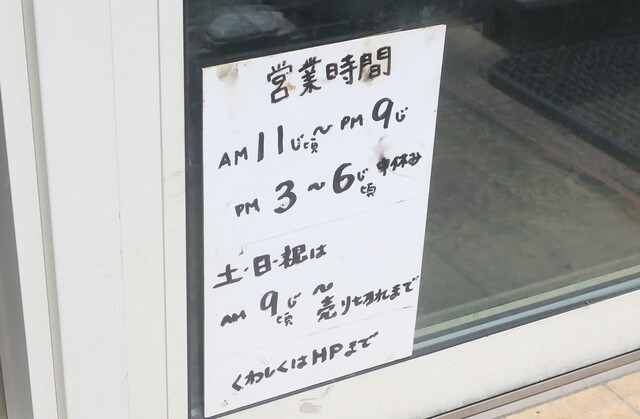 営業時間
AM 11じ頃〜PM 9じ
PM 3〜6じ頃 中休み
土・日・祝は
AM 9じ頃〜売り切れまで
くわしくはHPまで